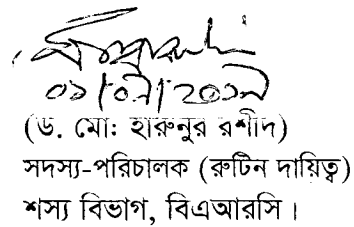 (ড. মো: হারুনুর রশীদ)
সদস্য-পরিচালক (রুটিন দায়িত্ব)
শস্য বিভাগ, বিএআরসি।